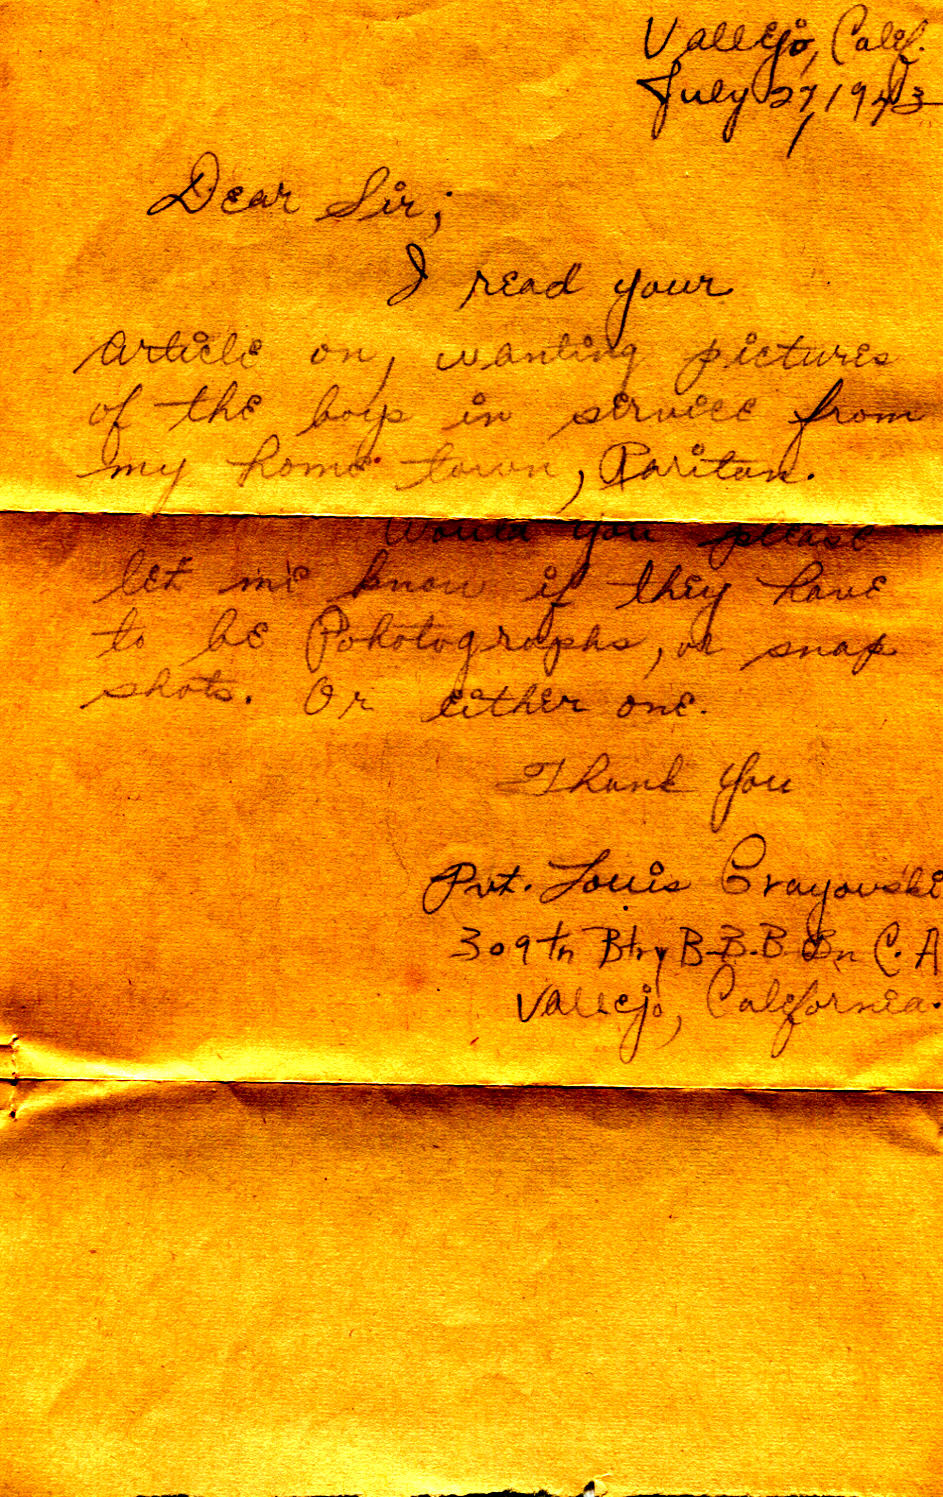 Vallejo, Calif.
July 27, 1943
Dear Sir;
I read your
article on, wanting pictures
of the boys in service from
my home town, Raritan.
Would you please
let me know if they have
to be Pohotographs, or snap
shots. Or either one.
Thank you
Pvt. Louis Grayowski
309th Btry B-B.B Bn C.A
Vallejo, California.